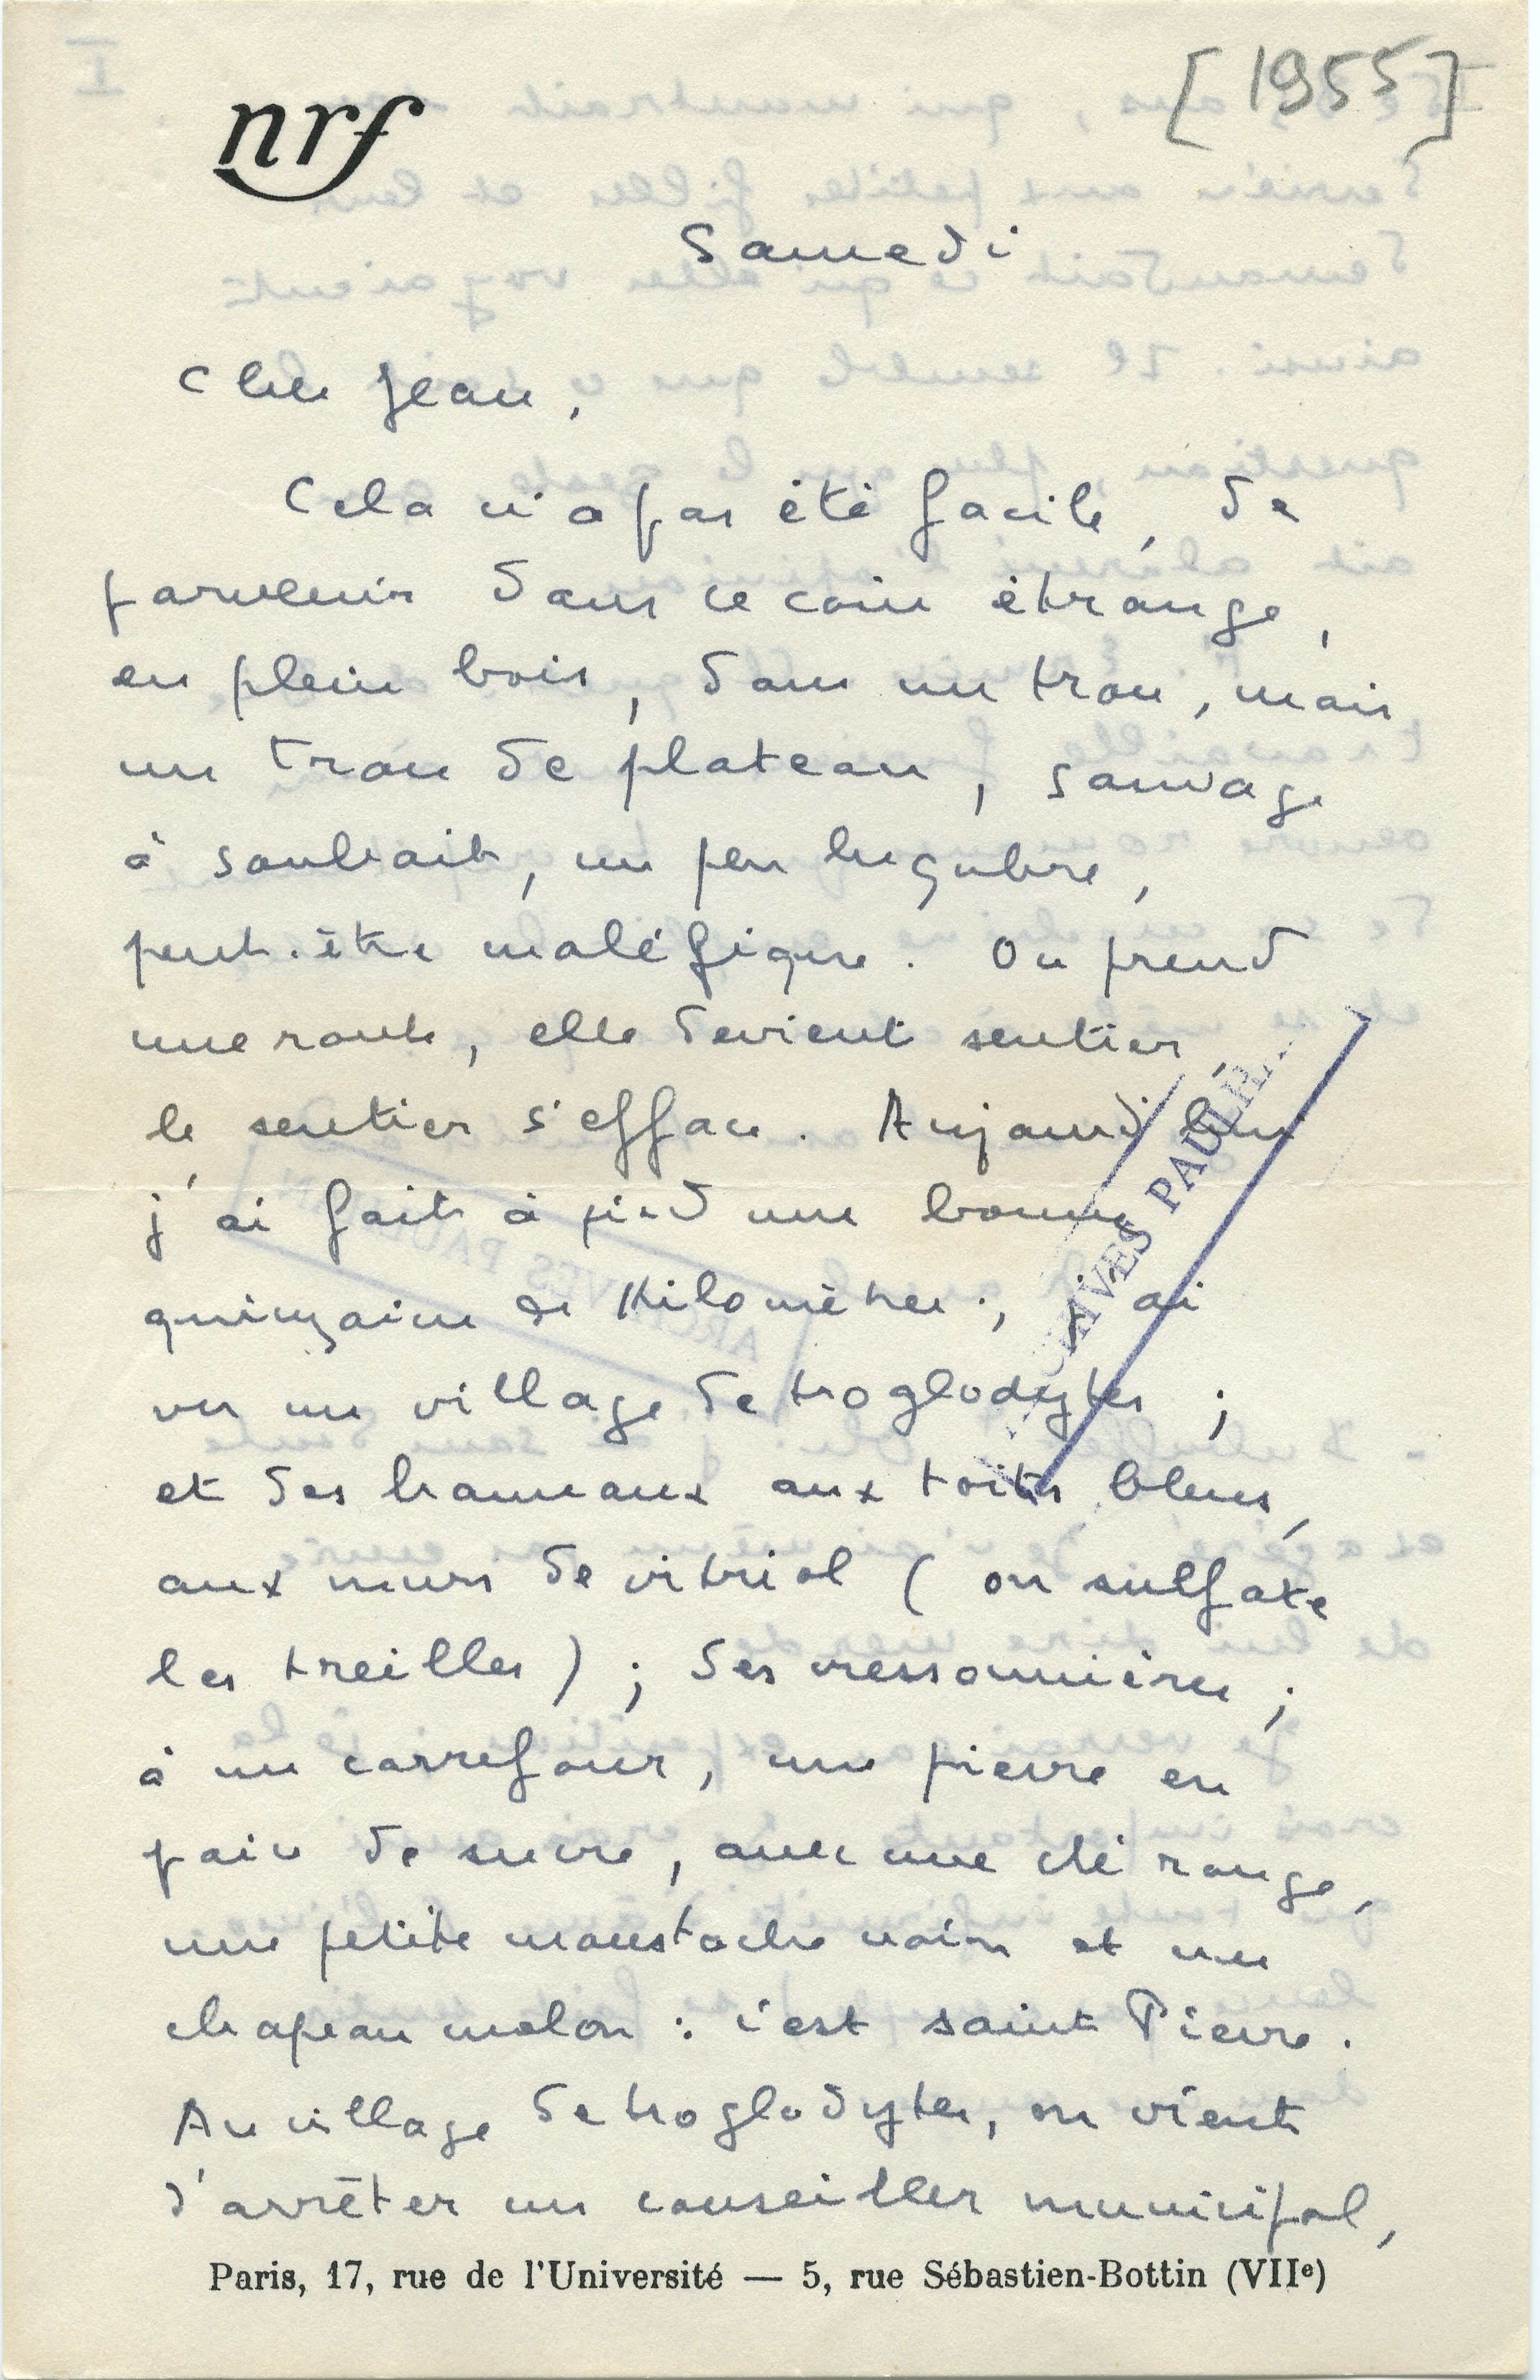 [1955]
nrf
Samedi
Cher Jean,
Cela n'a pas été facile, de
parvenir dans ce coin étrange,
en plein bois, dans un trou, mais
un trou de plateau, sauvage
à souhait, un peu lugubre,
peut-être maléfique. On prend
une route, elle devient sentier,
le sentier s'efface. Aujourd'hui
j'ai fait à pied une bonne
quinzaine de kilomètres ; j'ai
vu un village de troglodytes ;
et des hameaux aux toits bleus,
aux murs de vitriol (on sulfate
les treilles) ; des cressonnières ;
à un carrefour, une pierre en
pain de sucre, avec une clé rouge,
une petite moustache noire et un
chapeau melon : c'est saint Pierre.
Au village de troglodytes, on vient
d'arrêter un conseiller municipal,
ARCHIVES PAULH
Paris, 17, rue de l'Université — 5, rue Sébastien-Bottin (VIIe)